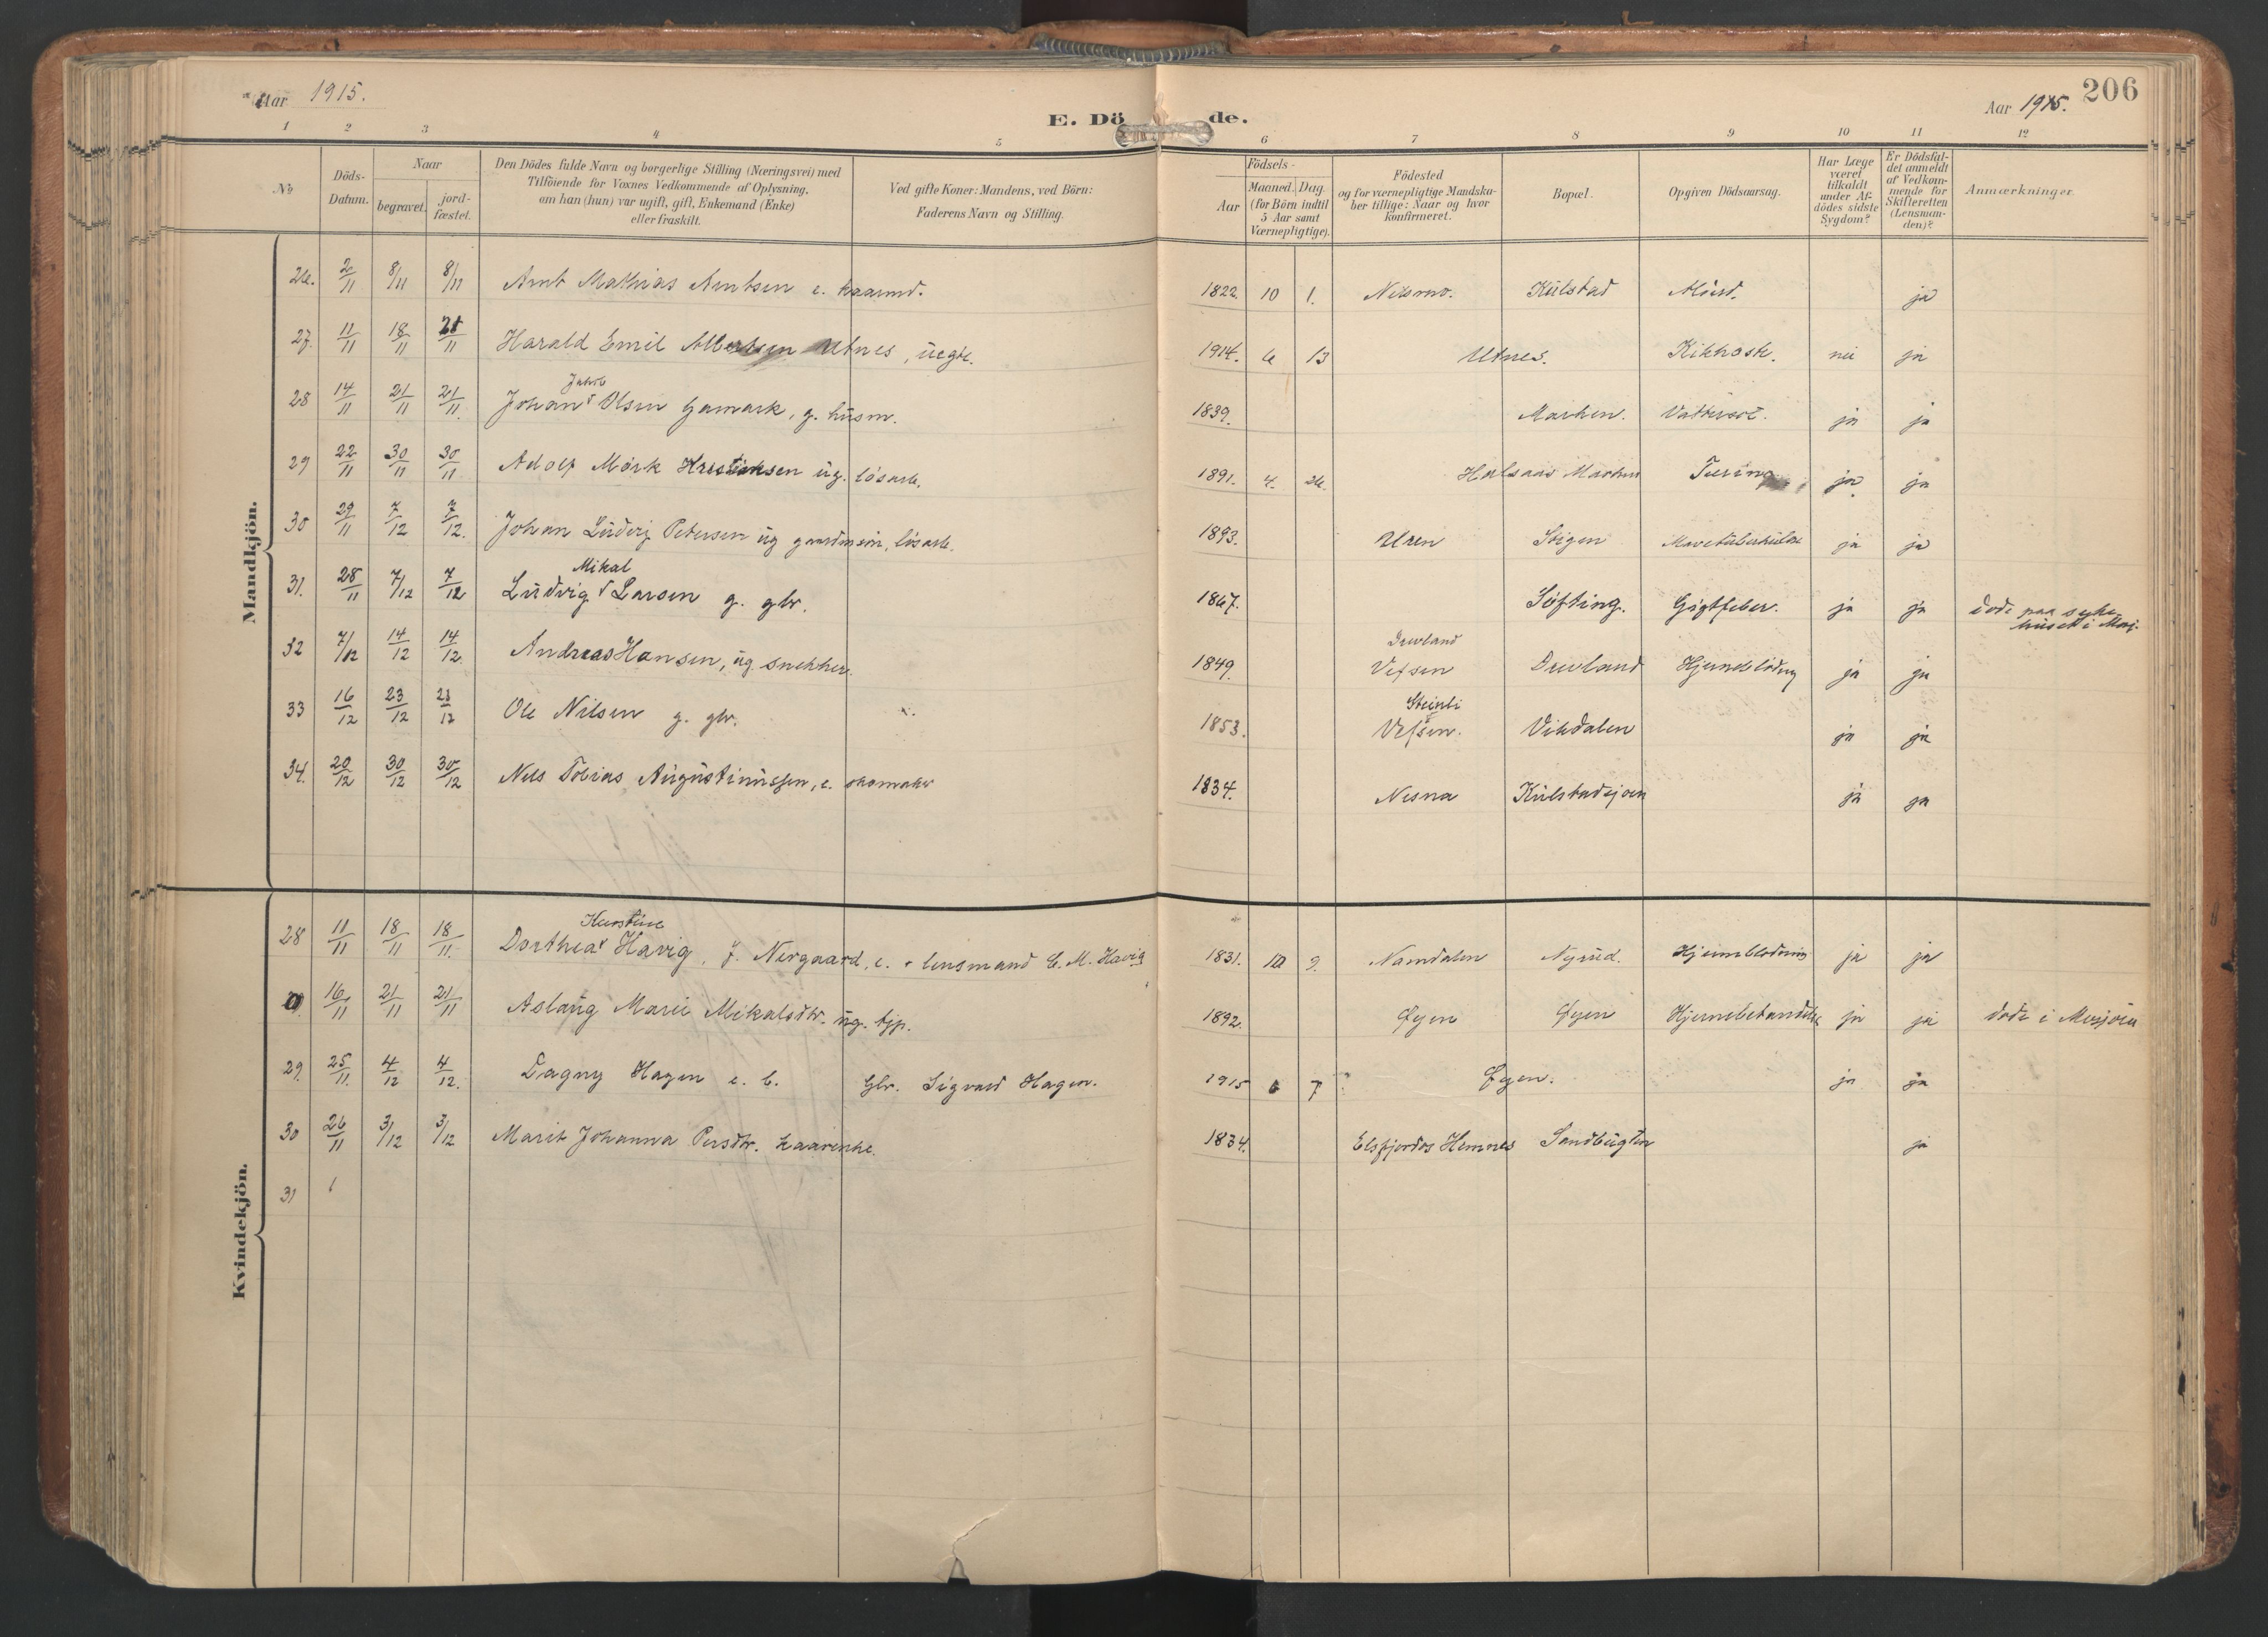 Aar 1915.
E. Dö de.
Aar 1915.
206
1 2 3 4 5 6 7 8 9 10 11 12
No
Döds-
Datum.
Naar
begravet.
jord-
fæstet.
Den Dödes fulde Navn og borgerlige Stilling (Næringsvei) med
Tilföiende for Voxnes Vedkommende af Oplysning,
om han (hun) var ugift, gift, Enkemand (Enke)
eller fraskilt.
Ved gifte Koner: Mandens, ved Börn:
Faderens Navn og Stilling.
Födsels-
Aar
Maaned. Dag.
(for Börn indtil
5 Aar samt
Værnepligtige).
Födested
og for værnepligtige Mandska-
ber tillige: Naar og hvor
konfirmeret.
Bopæl.
Opgiven Dödsaarsag.
Har Læge
været
tilkaldt
under Af-
dödes sidste
Sygdom?
Er Dödsfal-
det anmeldt
af Vedkom-
mende for
Skifteretten
(Lensman-
den)?
Anmærkninger.
Mandkjön.
26. 2/11 8/11 8/11 Arnt Mathias Arntsen e. kaarmd. 1822. 10 1. Kulstad ja
27. 11/11 18/11 21/11 Harald Emil Albertsen Utnes, uegte. 1914. 6 13 Utnes. Kikhoste. nei ja
Jakob
28 14/11 21/11 21/11 Johan Olsen Gamark, g. husm. 1839. Marken. Vattersot. ja ja
29 22/11 30/11 30/11 Adolf Mörk Kristensen ug. lösarb. 1891. 4. 26. Halsaas Marken ja ja
30 29/11 7/12 7/12. Johan Ludvig Petersen ug gaardmsön, lösarb. 1893. Uren Stigen Mavetuberkulose ja ja
Mikal
31. 28/11 7/12 7/12 Ludvig Larsen g. gbr. 1867. Söfting. Gigtfeber. ja ja döde paa syke-
huset i Mosj.
Drevland
32 7/12 14/12 14/12 Andreas Hansen, ug snekker. 1849. Vefsen Drevland Hjerneblödning ja ja
Steinli
33 16/12 23/12 23/12 Ole Nilsen g. gbr. 1853. Vefsen. Vikdalen ja ja
34. 20/12 30/12 30/12 Nils Tobias Augustinussen, e. skomaker 1834. Nesna Kulstadsjöen ja ja
Kvindekjön.
Karstine
28 11/11 18/11 18/11. Dorthea Havig, f. Nergaard, e. e. lensmand C. M. Havig 1831. 10 9. Namdalen Nyrud. Hjerneblödning ja ja
16/11 21/11 21/11 Aslaug Marie Mikalsdtr. ug. tjp. 1892. Öyen Öyen Hjernebetændelse ja ja döde i Mosjöen
29. 25/11. 4/12 4/12. Dagny Hagen e. b. Gbr. Sigvard Hagen. 1915 6 7 Öyen. ja ja
30 26/11 3/12 3/12 Marit Johanna Persdtr. kaarenke. 1834. Elsfjorden Hemnes Sandbugten ja
31